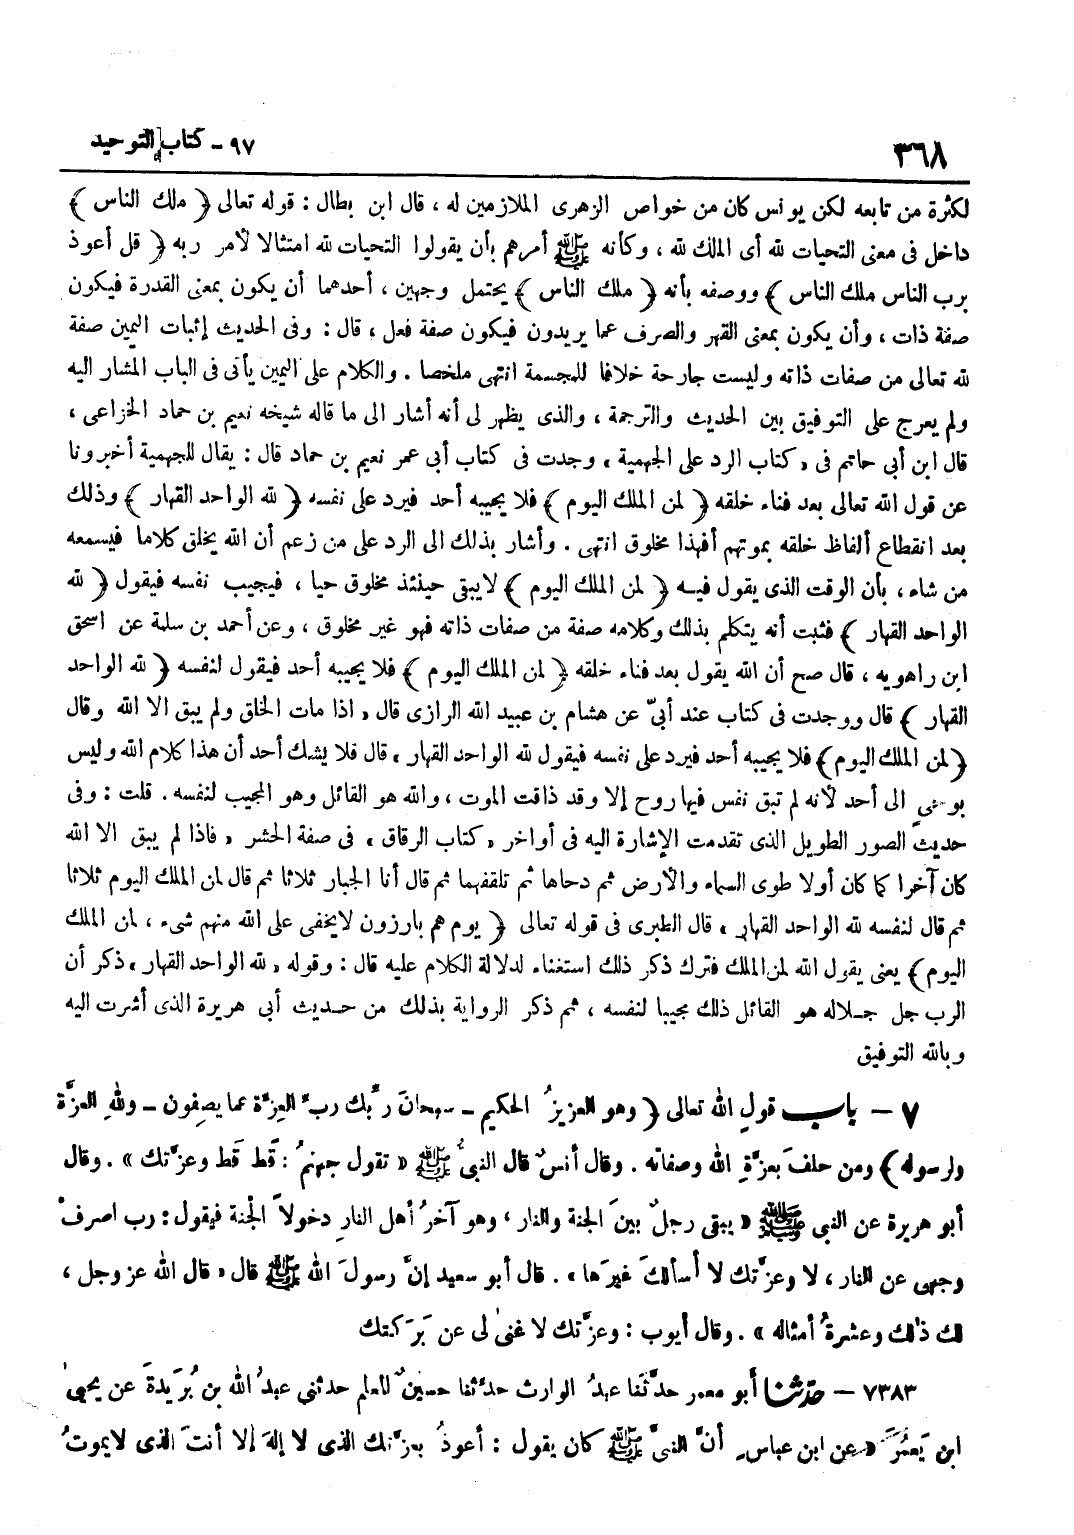 ٣٦٨ ٩٧ - كتاب التوحيد
لكثرة من تابعه لكن يونس كان من خواص الزهرى الملازمين له ، قال ابن بطال : قوله تعالى ﴿ ملك الناس ﴾
داخل فى معنى التحيات لله أى الملك لله ، وكأنه ﷺ أمرهم بأن يقولوا التحيات لله امتثالا لأمر ربه ﴿ قل أعوذ
برب الناس ملك الناس ﴾ ووصفه بأنه ﴿ ملك الناس ﴾ يحتمل وجهين ، أحدهما أن يكون بمعنى القدرة فيكون
صفة ذات ، وأن يكون بمعنى القهر والصرف عما يريدون فيكون صفة فعل ، قال : وفى الحديث إثبات اليمين صفة
لله تعالى من صفات ذاته وليست جارحة خلافا للمجسمة انتهى ملخصا . والكلام على اليمين يأتى فى الباب المشار اليه
ولم يعرج على التوفيق بين الحديث والترجمة ، والذى يظهر لى أنه أشار الى ما قاله شيخه نعيم بن حماد الخزاعى ،
قال ابن أبى حاتم فى « كتاب الرد على الجهمية » وجدت فى كتاب أبى عمر نعيم بن حماد قال : يقال للجهمية أخبرونا
عن قول الله تعالى بعد فناء خلقه ﴿ لمن الملك اليوم ﴾ فلا يجيبه أحد فيرد على نفسه ﴿ لله الواحد القهار ﴾ وذلك
بعد انقطاع ألفاظ خلقه بموتهم أفهذا مخلوق انتهى . وأشار بذلك الى الرد على من زعم أن الله يخلق كلاما فيسمعه
من شاء ، بأن الوقت الذى يقول فيه ﴿ لمن الملك اليوم ﴾ لايبقى حينئذ مخلوق حيا ، فيجيب نفسه فيقول ﴿ لله
الواحد القهار ﴾ فثبت أنه يتكلم بذلك وكلامه صفة من صفات ذاته فهو غير مخلوق ، وعن أحمد بن سلمة عن اسحق
ابن راهويه ، قال صح أن الله يقول بعد فناء خلقه ﴿ لمن الملك اليوم ﴾ فلا يجيبه أحد فيقول لنفسه ﴿ لله الواحد
القهار ﴾ قال ووجدت فى كتاب عند أبىّ عن هشام بن عبيد الله الرازى قال « اذا مات الخلق ولم يبق الا الله وقال
﴿ لمن الملك اليوم ﴾ فلا يجيبه أحد فيرد على نفسه فيقول لله الواحد القهار ، قال فلا يشك أحد أن هذا كلام الله وليس
بوحي الى أحد لأنه لم تبق نفس فيها روح إلا وقد ذاقت الموت ، والله هو القائل وهو المجيب لنفسه . قلت : وفى
حديث الصور الطويل الذى تقدمت الإشارة اليه فى أواخر « كتاب الرقاق » فى صفة الحشر « فاذا لم يبق الا الله
كان آخرا كما كان أولا طوى السماء والأرض ثم دحاها ثم تلقفهما ثم قال أنا الجبار ثلاثا ثم قال لمن الملك اليوم ثلاثا
ثم قال لنفسه لله الواحد القهار » قال الطبرى فى قوله تعالى ﴿ يوم هم بارزون لايخفى على الله منهم شىء ، لمن الملك
اليوم ﴾ يعنى يقول الله لمن الملك فترك ذكر ذلك استغناء لدلالة الكلام عليه قال : وقوله « لله الواحد القهار » ذكر أن
الرب جل جـلاله هو القائل ذلك مجيبا لنفسه ، ثم ذكر الرواية بذلك من حـديث أبى هريرة الذى أشرت اليه
وبالله التوفيق
٧ - باب قولِ الله تعالى ﴿ وهو العزيزُ الحكيم – سبحانَ ربِّك ربِّ العِزَّة عما يصِفون – وللهِ العزَّة
ولرسوله ﴾ ومن حلفَ بعزَّةِ الله وصفاته . وقال أنسٌ قال النبىُّ ﷺ « تقول جهنمُ : قَط قَط وعزَّتك » . وقال
أبو هريرة عن النبى ﷺ « يبقى رجلٌ بينَ الجنة والنار ، وهو آخرُ أهل النارِ دخولاً الجنة فيقول : رب اصرفْ
وجهى عن النار ، لا وعزَّتك لا أسألكَ غيرَها » . قال أبو سعيد إنَّ رسولَ الله ﷺ قال « قال الله عز وجل ،
لك ذلك وعشرةُ أمثاله » . وقال أيوب : وعزَّتك لا غنىٰ لى عن بَرَكتك
٧٣٨٣ – حدّثنا أبو معمر حدَّثَنا عبدُ الوارث حدَّثنا حسينٌ المعلم حدثنى عبدُ الله بن بُرَيدةَ عن يحيىٰ
ابن يَعمُرَ « عن ابن عباس أنَّ النبىَّ ﷺ كان يقول : أعوذُ بعزَّتك الذى لا إلهَ إلا أنتَ الذى لايموتُ